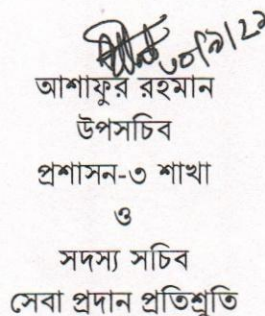 আশাফুর রহমান
উপসচিব
প্রশাসন-৩ শাখা
ও
সদস্য সচিব
সেবা প্রদান প্রতিশ্রুতি